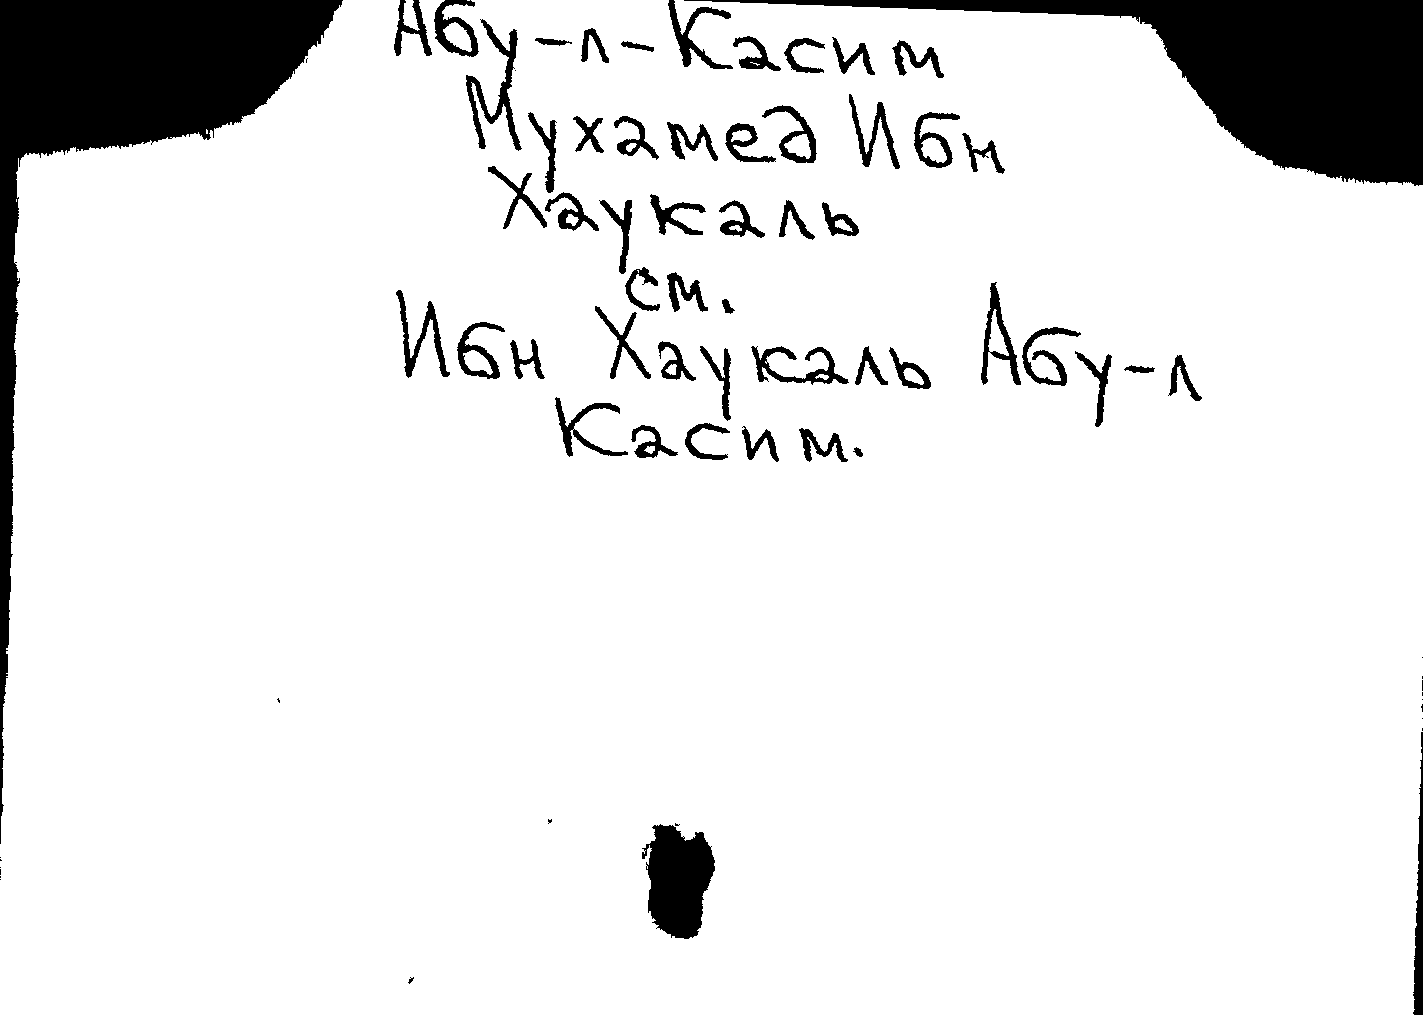 Абу-л-Касим
Мухамед Ибн
Хаукаль
см.
Ибн Хаукаль Абу-л
Касим.